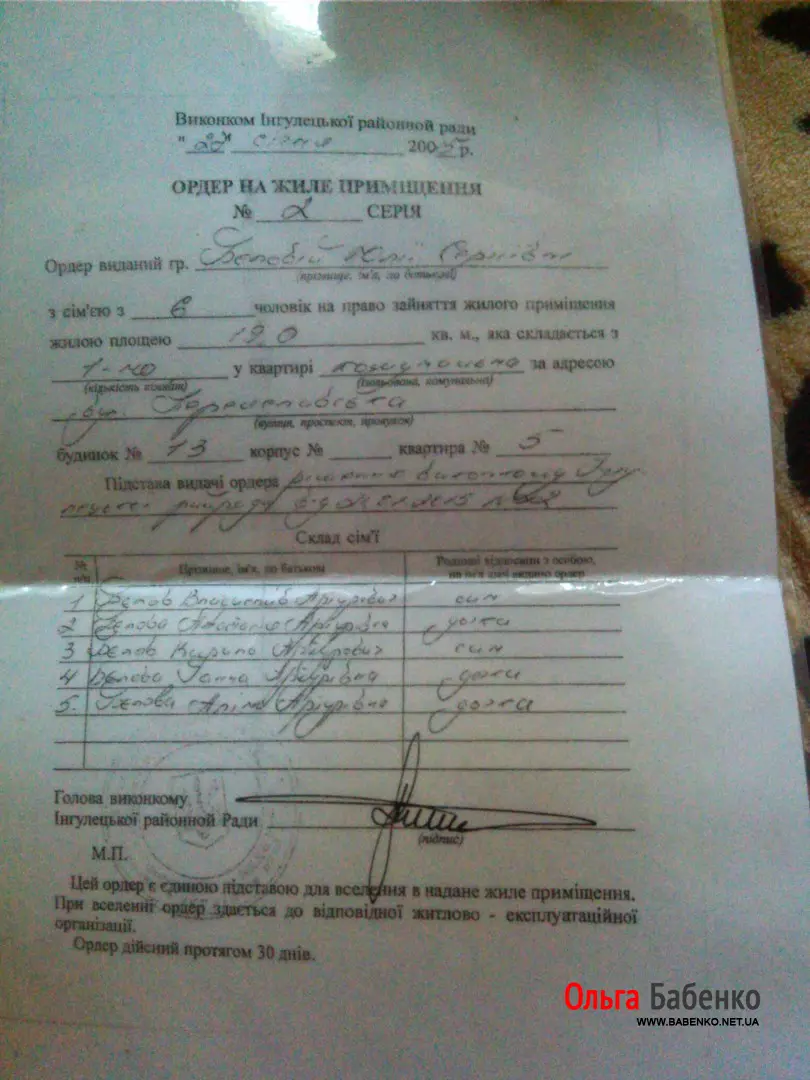 Виконком Інгулецької районної ради
"20" січня 2005р.
ОРДЕР НА ЖИЛЕ ПРИМІЩЕННЯ
№ 2 СЕРІЯ
Ордер виданий гр. Беловій Юлії Сергіївні
(прізвище, ім'я, по батькові)
з сім'єю з 6 чоловік на право зайняття жилого приміщення
жилою площею 19.0 кв. м., яка складається з
1-но у квартирі комунальна за адресою
(кількість кімнат) (ізольована, комунальна)
вул.
(вулиця, проспект, провулок)
будинок № 13 корпус № квартира № 5
Підстава видачі ордера рішення виконкому Інгу
райради від
Склад сім'ї
№ п/п Прізвище, ім'я, по батькові Родинні відносини з особою, на ім'я якої видано ордер
1 Белов Владислав Артурович син
2 Белова Артурівна дочка
3 Белов Кирило Артурович син
4 Белова Ганна Артурівна дочка
5. Белова Аліна Артурівна дочка
Голова виконкому
Інгулецької районної Ради
(підпис)
М.П.
Цей ордер є єдиною підставою для вселення в надане жиле приміщення.
При вселенні ордер здається до відповідної житлово - експлуатаційної
організації.
Ордер дійсний протягом 30 днів.
Ольга Бабенко
WWW.BABENKO.NET.UA